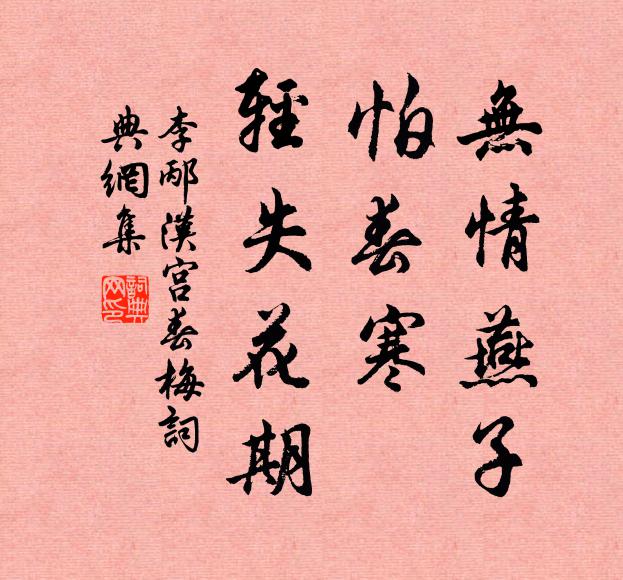 無情燕子
怕春寒
輕失花期
李邴漢宮春梅詞
典網集
詞典網印